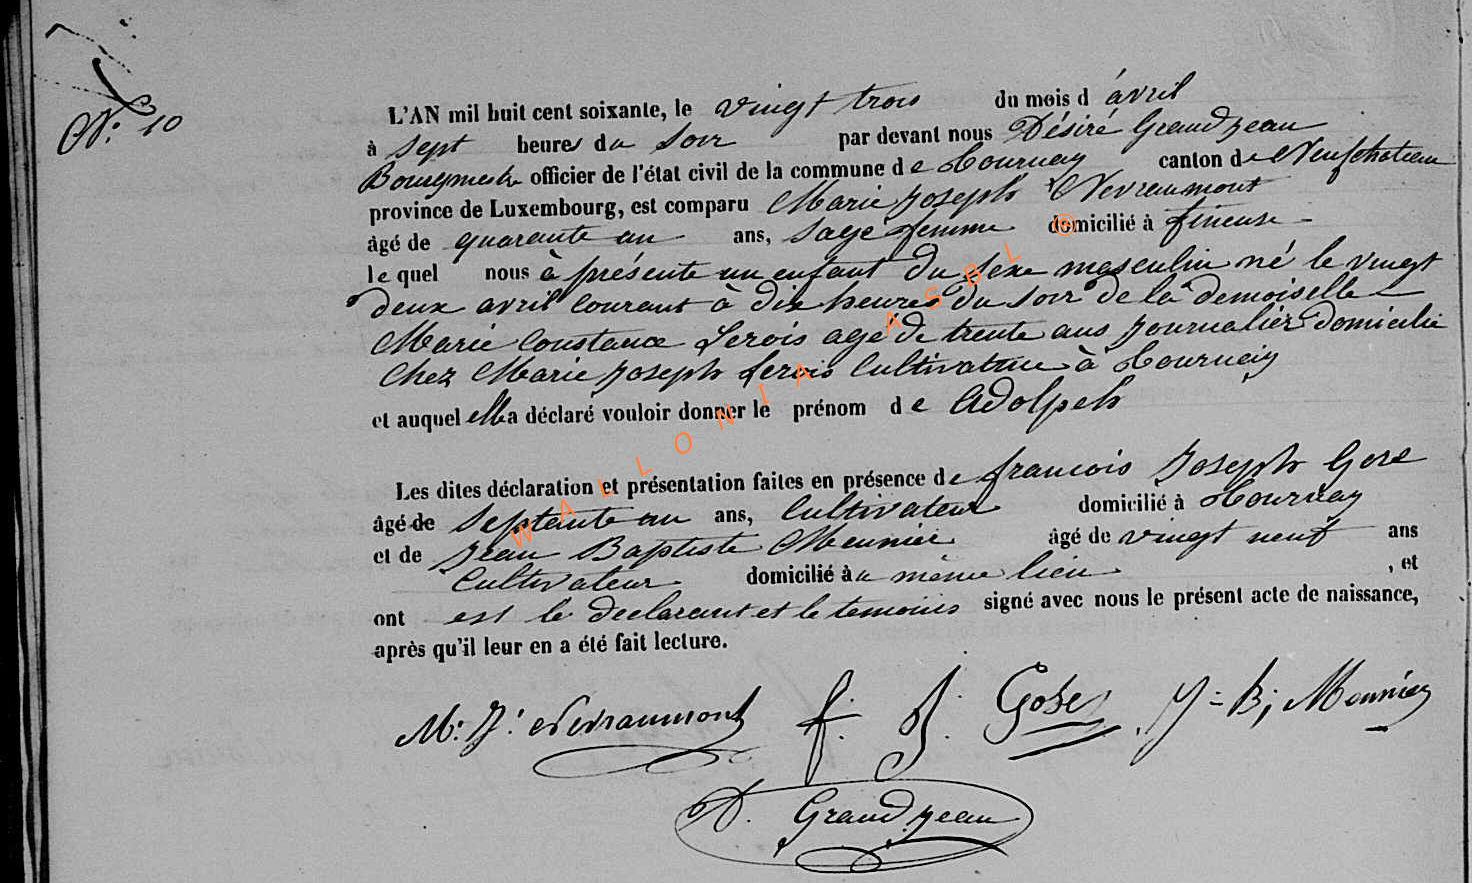 N: 10
L'AN mil huit cent soixante, le vingt trois du mois d'avril
à sept heures du soir par devant nous Désiré Grandjean
Bourgmestre officier de l'état civil de la commune de Tournay canton de Neufchateau
province de Luxembourg, est comparu Marie Joseph Nevraumont
âgé de quarante un ans, sage femme domicilié à fineuse
lequel nous à présenté un enfant du sexe masculin né le vingt
deux avril courant à dix heures du soir de la demoiselle
Marie Constance Lerois agé de trente ans journalièr domicilié
chez Marie Joseph Lerois Cultivateur à Tournay
et auquel elle a déclaré vouloir donner le prénom de Adolpeh
Les dites déclaration et présentation faites en présence de francois Joseph Gose
âgé de Septante un ans, Cultivateur domicilié à Tournay
et de Jean Baptiste Meunier âgé de vingt neuf ans
Cultivateur domicilié à u même lieu, et
ont est le declarant et le temoins signé avec nous le présent acte de naissance,
après qu'il leur en a été fait lecture.
M: J: Nevraumont f. J. Gose J=B; Meunier
D. Grandjean
WALLONIA ASBL ©